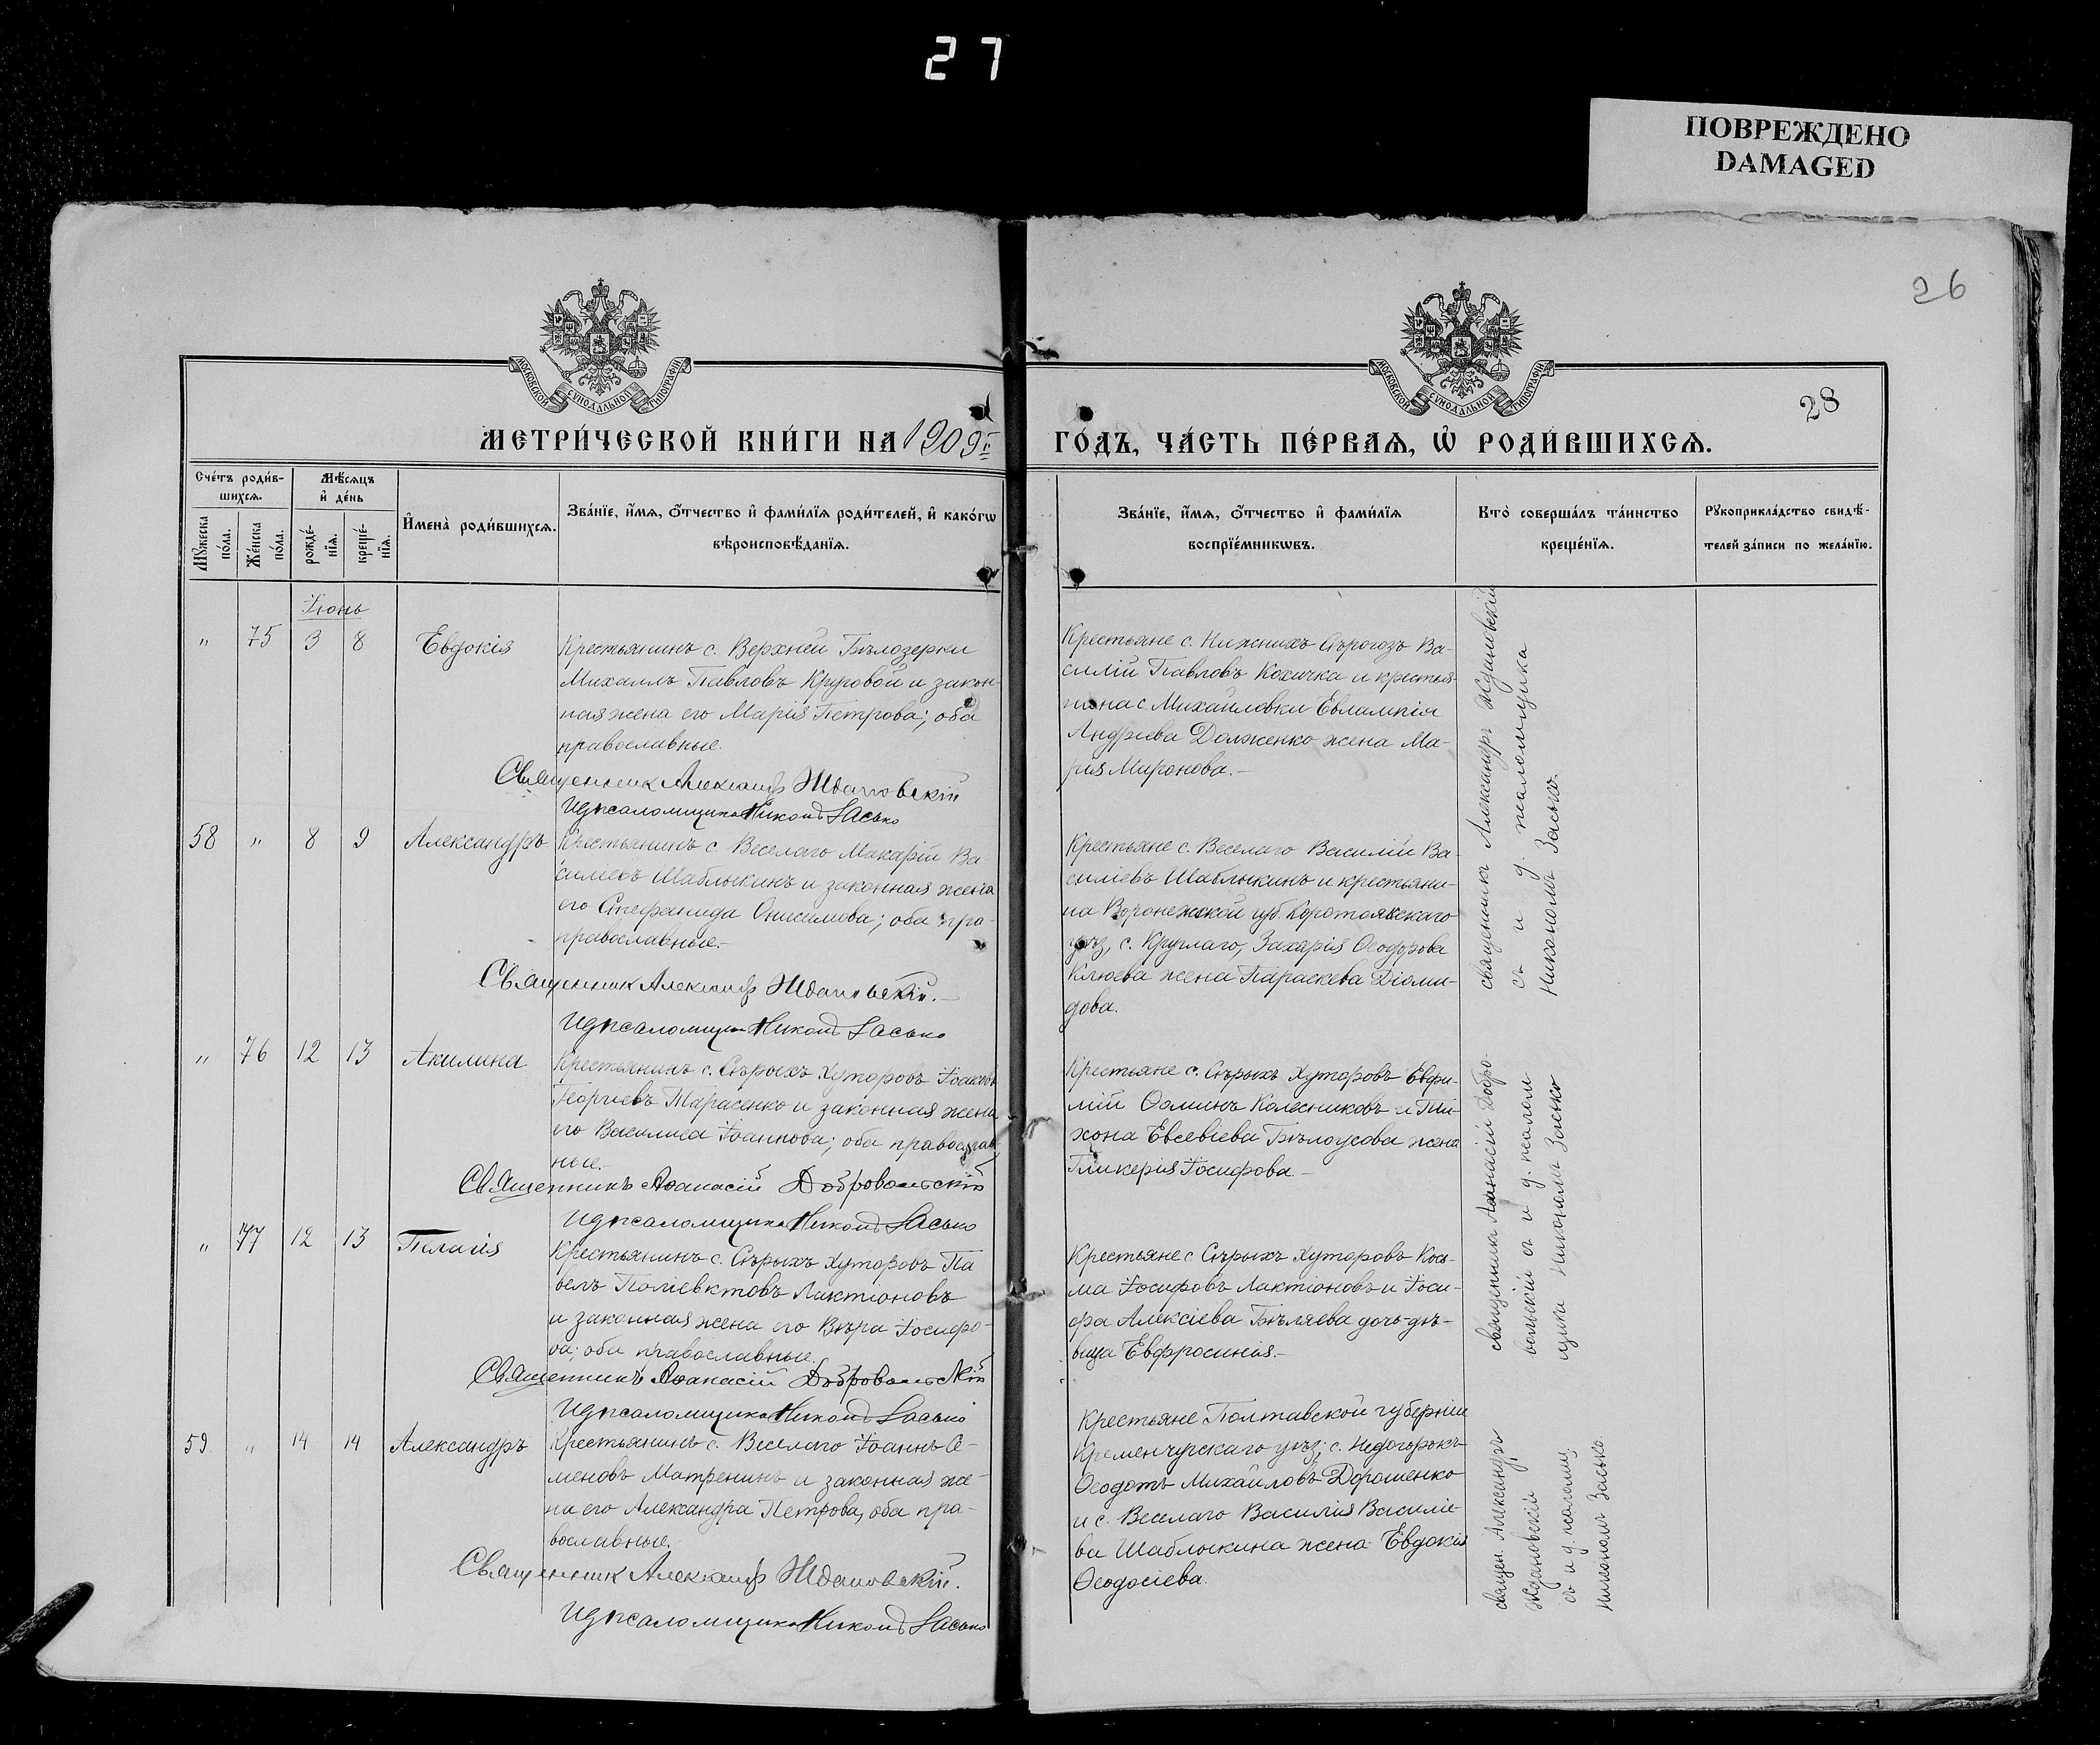 27
ПОВРЕЖДЕНО
DAMAGED
26
28
МОСКОВСКОЙ СУНОДАЛЬНОЙ ТИПОГРАФІИ
МОСКОВСКОЙ СУНОДАЛЬНОЙ ТИПОГРАФІИ
МЕТРИ́ЧЕСКОЙ КНИ́ГИ НА 1909 г.
ГО́ДЪ, ЧА́СТЬ ПЕ́РВАѦ, Ѡ҆ РОДИ́ВШИХСѦ.
Сче́тъ роди́в-
шихсѧ.
Мꙋ́жеска
по́ла.
Же́нска
по́ла.
Мѣ́сѧцъ
и҆ де́нь
рожде́-
нїѧ.
креще́-
нїѧ.
И҆мена̀ роди́вшихсѧ.
Зва́нїе, и҆́мѧ, ѻ҆́тчество и҆ фами́лїѧ роди́телей, и҆ како́гѡ
вѣроисповѣ́данїѧ.
Зва́нїе, и҆́мѧ, ѻ҆́тчество и҆ фами́лїѧ
воспрїе́мникѡвъ.
Кто̀ соверша́лъ та́инство
креще́нїѧ.
Рꙋкоприкла́дство свидѣ́-
телей за́писи по жела́нїю.
Іюнь
" 75 3 8 Евдокія
Крестьянинъ с. Верхней Бѣлозерки
Михаилъ Павловъ Круговой и закон-
ная жена его Марія Петрова; оба
православные.
Священник Александр Ждановскій
И д псаломщика Никонъ Засько
Крестьяне с. Нижнихъ Сѣрогозъ Ва-
силій Павловъ Кохичка и крестья-
нина с Михайловки Евлампія
Андреева Долженко жена Ма-
рія Миронова.-
священникъ Александръ Ждановскій
съ и д. псаломщика
Никономъ Засько.
58 " 8 9 Александръ
Крестьянинъ с Веселаго Макарій Ва-
сильевъ Шаблыкинъ и законная жена
его Стефанида Онисимова; оба пра-
православные.-
Священник Александр Ждановскій.-
И д псаломщик Никонъ Засько
Крестьяне с. Веселаго Василій Ва-
сильевъ Шаблыкинъ и крестьяни-
на Воронежской губ. Коротоякскаго
уѣз, с. Круглаго, Захарія Ѳеодорова
Клюева жена Параскева Діоми-
дова.
" 76 12 13 Акилина
Крестьянинъ с. Сѣрыхъ Хуторовъ Іоаковъ
Георгіевъ Тарасенко и законная жена
его Василиса Іоаннова; оба православ
ные.
Священникъ Аѳанасій Добровольскій
И д псаломщика Никонъ Засько
Крестьяне с. Сѣрыхъ Хуторовъ Евфи-
мій Ѳоминъ Колесниковъ и Ти-
хона Евсевіева Бѣлоусова жена
Гликерія Іосифова -
священникъ Аѳанасій Добро-
вольскій съ и д. псалом-
щика Никономъ Засько
" 77 12 13 Пелагія
Крестьянинъ с. Сѣрыхъ Хуторовъ Па
велъ Поліевктовъ Лактіоновъ
и законная жена его Вѣра Іосифо-
ва; оба православные.
Священникъ Аѳанасій Добровольскій
И д псаломщика Никонъ Засько
Крестьяне с Сѣрыхъ Хуторовъ Кось-
ма Іосифовъ Лактіоновъ и Іоси-
фа Алексіева Бѣляева дочь дѣ-
вица Евфросинія.-
59 " 14 14 Александръ
Крестьянинъ с. Веселаго Іоаннъ Се-
меновъ Матренинъ и законная же-
на его Александра Петрова, оба пра-
вославные.
Священник Александр Ждановскій.
И д псаломщика Никонъ Засько
Крестьяне Полтавской губерніи
Кременчугскаго уѣз; с. Недогорокъ
Ѳеодотъ Михайловъ Дорошенко
и с. Веселаго Василія Василіе-
ва Шаблыкина жена Евдокія
Ѳеодосіева.
священ. Александръ
Ждановскій
съ и д. псаломщ.
Никономъ Засько.